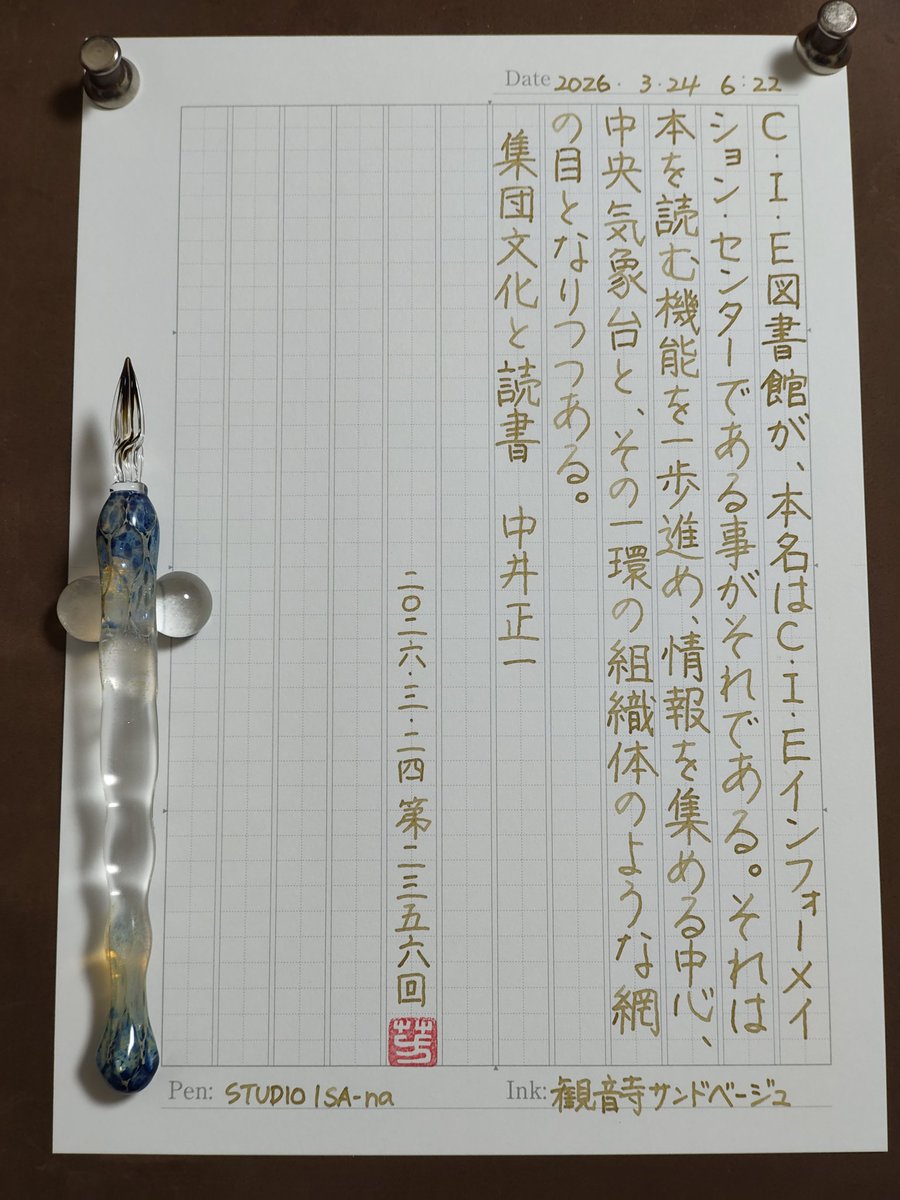 Date 2026. 3.24 6:22
C・I・E図書館が、本名はC・I・Eインフォーメイ
ション・センターである事がそれである。それは
本を読む機能を一歩進め、情報を集める中心、
中央気象台と、その一環の組織体のような網
の目となりつつある。
集団文化と読書 中井正一
二〇二六・三・二四 第二三五六回
Pen: STUDIO ISA-na
Ink: 観音寺サンドベージュ